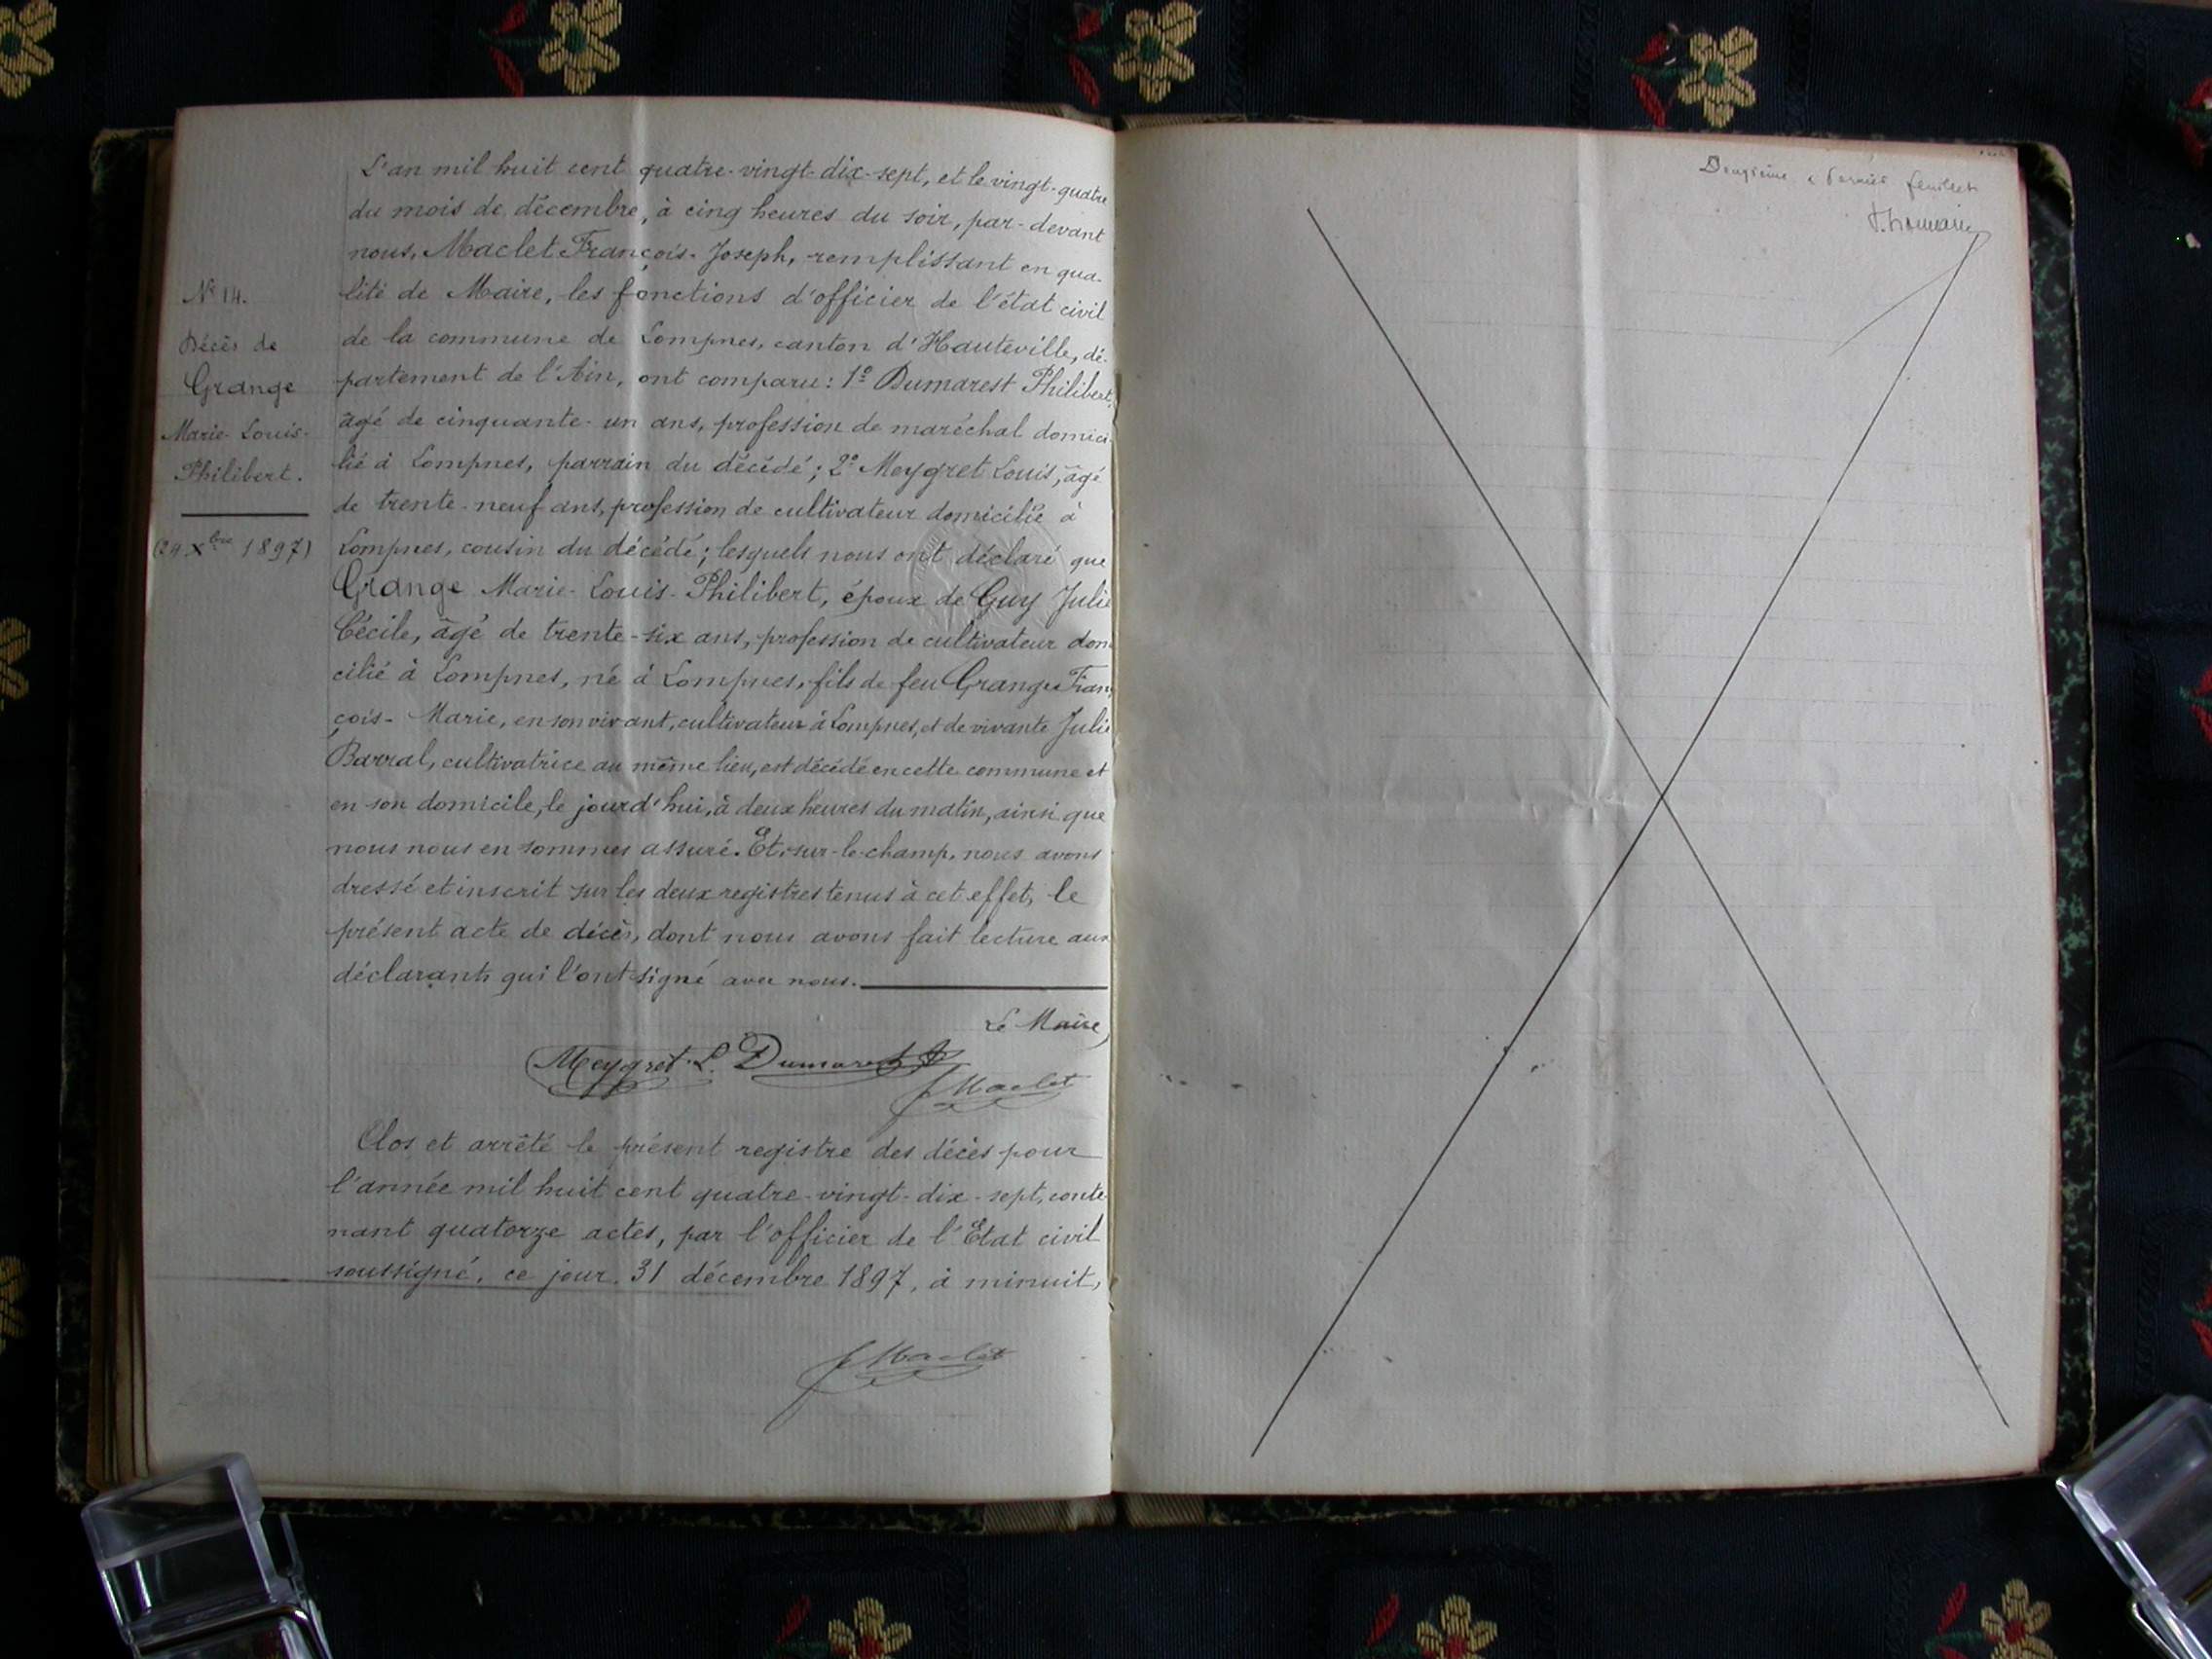 L'an mil huit cent quatre-vingt-dix-sept, et le vingt-quatre
du mois de décembre, à cinq heures du soir, par-devant
nous, Maclet François-Joseph, remplissant en qua-
lité de Maire, les fonctions d'officier de l'état civil
de la commune de Lompnes, canton d'Hauteville, dé-
partement de l'Ain, ont comparu : 1º Dumarest Philibert,
âgé de cinquante-un ans, profession de maréchal domici-
lié à Lompnes, parrain du décédé ; 2º Meygret Louis, âgé
de trente-neuf ans, profession de cultivateur domicilié à
Lompnes, cousin du décédé ; lesquels nous ont déclaré que
Grange Marie-Louis-Philibert, époux de Guy Julie
Cécile, âgé de trente-six ans, profession de cultivateur dom
cilié à Lompnes, né à Lompnes, fils de feu Grange Fran-
çois-Marie, en son vivant, cultivateur à Lompnes, et de vivante Julie
Barral, cultivatrice au même lieu, est décédé en cette commune et
en son domicile, le jourd'hui, à deux heures du matin, ainsi que
nous nous en sommes assuré. Et, sur-le-champ, nous avons
dressé et inscrit sur les deux registres tenus à cet effet, le
présent acte de décès, dont nous avons fait lecture aux
déclarants qui l'ont signé avec nous.
Le Maire,
Meygret L. Dumarest
J Maclet
Clos et arrêté le présent registre des décès pour
l'année mil huit cent quatre-vingt-dix-sept, conte-
nant quatorze actes, par l'officier de l'Etat civil
soussigné, ce jour, 31 décembre 1897, à minuit,
J Maclet
Nº 14.
Décès de
Grange
Marie-Louis-
Philibert.
(24 Xbre 1897)
Deuxième et dernier feuillet